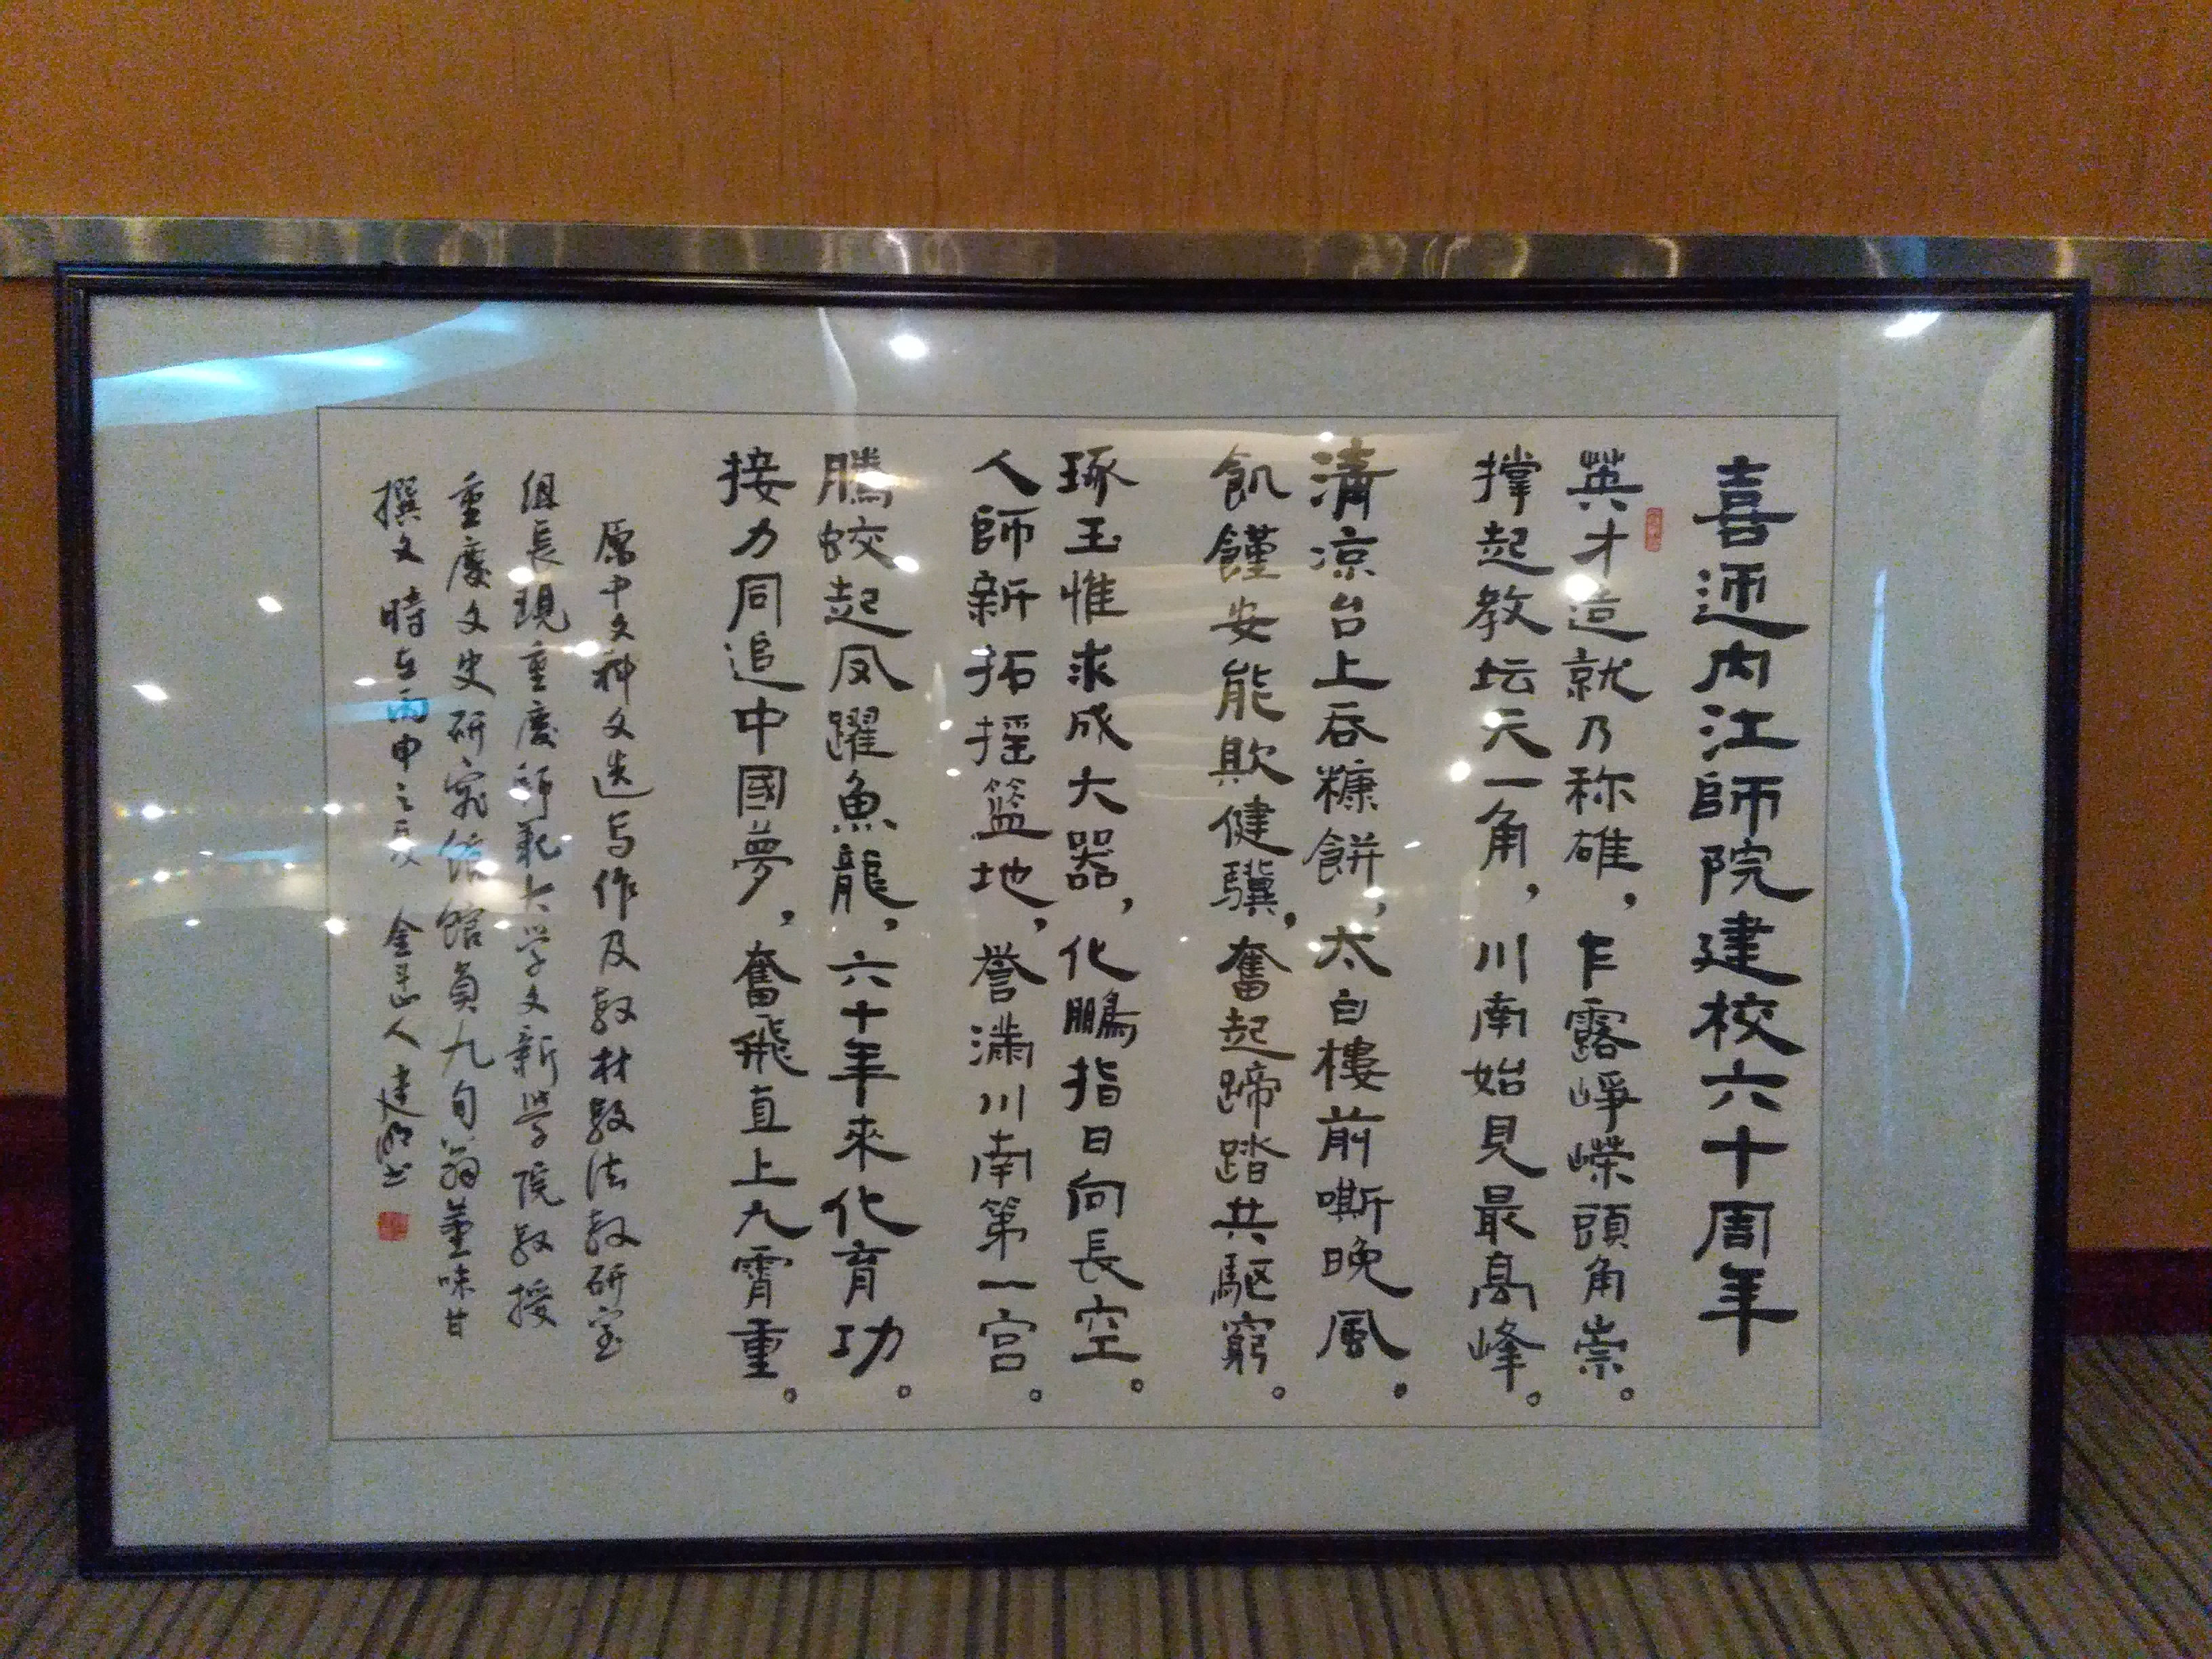 喜迊内江師院建校六十周年
英才造就乃称雄，乍露崢嶸頭角崇。
撐起教坛天一角，川南始見最高峰。
清凉台上吞糠餅，太白樓前嘶晚風。
飢饉安能欺健驥，奮起蹄踏共驅窮。
琢玉惟求成大器，化鵬指日向長空。
人師新拓摇籃地，誉滿川南第一宫。
騰蛟起凤躍魚龍，六十年來化育功。
接力同追中國夢，奮飛直上九霄重。
原中文科文选与作及教材教法教研室
组長現重慶師范大学文新学院教授
重慶文史研究館館員九旬翁董味甘
撰文 時在丙申之夏 人 书